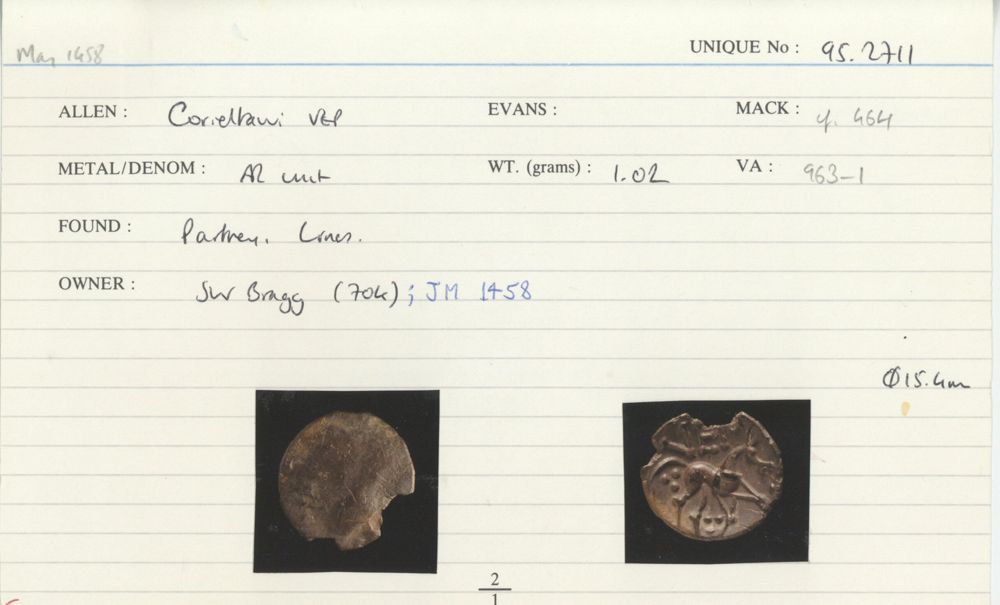 May 1458
UNIQUE No : 95.2711
ALLEN : Corieltavi VEP EVANS : MACK : cf. 464
METAL/DENOM : AR unit WT. (grams) : 1.02 VA : 963-1
FOUND : Partney, Lincs.
OWNER : SW Bragg (704); JM 1458
Ø15.4mm
2
1